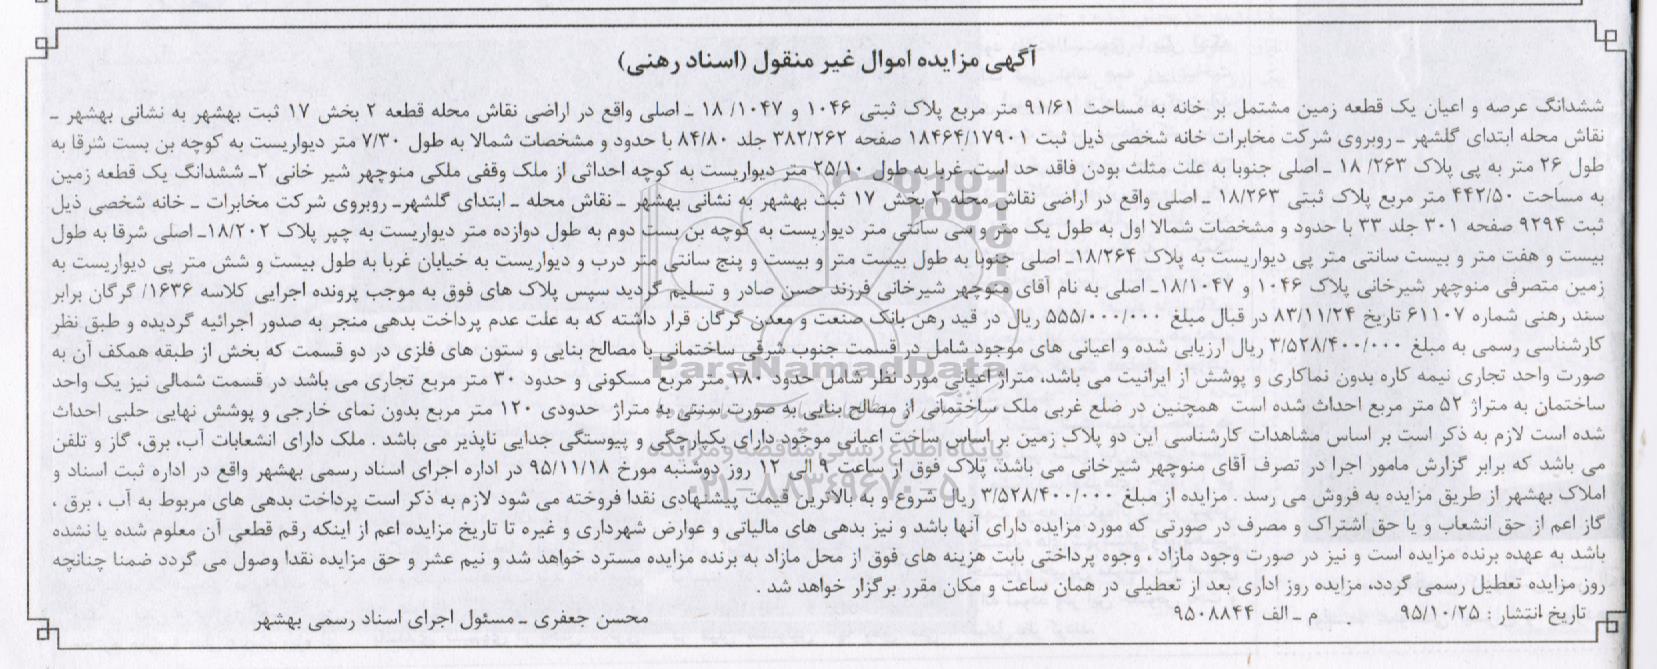 آگهی مزایده اموال غیر منقول (اسناد رهنی)
ششدانگ عرصه و اعیان یک قطعه زمین مشتمل بر خانه به مساحت ۹۱/۶۱ متر مربع پلاک ثبتی ۱۰۴۶ و ۱۰۴۷/ ۱۸ ـ اصلی واقع در اراضی نقاش محله قطعه ۲ بخش ۱۷ ثبت بهشهر به نشانی بهشهر ـ
نقاش محله ابتدای گلشهر ـ روبروی شرکت مخابرات خانه شخصی ذیل ثبت ۱۸۴۶۴/۱۷۹۰۱ صفحه ۳۸۲/۲۶۲ جلد ۸۴/۸۰ با حدود و مشخصات شمالا به طول ۷/۳۰ متر دیواریست به کوچه بن بست شرقا به
طول ۲۶ متر به پی پلاک ۲۶۳/ ۱۸ ـ اصلی جنوبا به علت مثلث بودن فاقد حد است. غربا به طول ۲۵/۱۰ متر دیواریست به کوچه احداثی از ملک وقفی ملکی منوچهر شیر خانی ۲ـ ششدانگ یک قطعه زمین
به مساحت ۴۴۲/۵۰ متر مربع پلاک ثبتی ۱۸/۲۶۳ ـ اصلی واقع در اراضی نقاش محله ۲ بخش ۱۷ ثبت بهشهر به نشانی بهشهر ـ نقاش محله ـ ابتدای گلشهرـ روبروی شرکت مخابرات ـ خانه شخصی ذیل
ثبت ۹۲۹۴ صفحه ۳۰۱ جلد ۳۳ با حدود و مشخصات شمالا اول به طول یک متر و سی سانتی متر دیواریست به کوچه بن بست دوم به طول دوازده متر دیواریست به چپر پلاک ۱۸/۲۰۲ـ اصلی شرقا به طول
بیست و هفت متر و بیست سانتی متر پی دیواریست به پلاک ۱۸/۲۶۴ـ اصلی جنوبا به طول بیست متر و بیست و پنج سانتی متر درب و دیواریست به خیابان غربا به طول بیست و شش متر پی دیواریست به
زمین متصرفی منوچهر شیرخانی پلاک ۱۰۴۶ و ۱۸/۱۰۴۷ـ اصلی به نام آقای منوچهر شیرخانی فرزند حسن صادر و تسلیم گردید سپس پلاک های فوق به موجب پرونده اجرایی کلاسه ۱۶۳۶/ گرگان برابر
سند رهنی شماره ۶۱۱۰۷ تاریخ ۸۳/۱۱/۲۴ در قبال مبلغ ۵۵۵/۰۰۰/۰۰۰ ریال در قید رهن بانک صنعت و معدن گرگان قرار داشته که به علت عدم پرداخت بدهی منجر به صدور اجرائیه گردیده و طبق نظر
کارشناسی رسمی به مبلغ ۳/۵۲۸/۴۰۰/۰۰۰ ریال ارزیابی شده و اعیانی های موجود شامل در قسمت جنوب شرقی ساختمانی با مصالح بنایی و ستون های فلزی در دو قسمت که بخش از طبقه همکف آن به
صورت واحد تجاری نیمه کاره بدون نماکاری و پوشش از ایرانیت می باشد، متراژ اعیانی مورد نظر شامل حدود ۱۸۰ متر مربع مسکونی و حدود ۳۰ متر مربع تجاری می باشد در قسمت شمالی نیز یک واحد
ساختمان به متراژ ۵۲ متر مربع احداث شده است همچنین در ضلع غربی ملک ساختمانی از مصالح بنایی به صورت سنتی به متراژ حدودی ۱۲۰ متر مربع بدون نمای خارجی و پوشش نهایی حلبی احداث
شده است لازم به ذکر است بر اساس مشاهدات کارشناسی این دو پلاک زمین بر اساس ساخت اعیانی موجود دارای یکپارچگی و پیوستگی جدایی ناپذیر می باشد . ملک دارای انشعابات آب، برق، گاز و تلفن
می باشد که برابر گزارش مامور اجرا در تصرف آقای منوچهر شیرخانی می باشد، پلاک فوق از ساعت ۹ الی ۱۲ روز دوشنبه مورخ ۹۵/۱۱/۱۸ در اداره اجرای اسناد رسمی بهشهر واقع در اداره ثبت اسناد و
املاک بهشهر از طریق مزایده به فروش می رسد . مزایده از مبلغ ۳/۵۲۸/۴۰۰/۰۰۰ ریال شروع و به بالاترین قیمت پیشنهادی نقدا فروخته می شود لازم به ذکر است پرداخت بدهی های مربوط به آب ، برق ،
گاز اعم از حق انشعاب و یا حق اشتراک و مصرف در صورتی که مورد مزایده دارای آنها باشد و نیز بدهی های مالیاتی و عوارض شهرداری و غیره تا تاریخ مزایده اعم از اینکه رقم قطعی آن معلوم شده یا نشده
باشد به عهده برنده مزایده است و نیز در صورت وجود مازاد ، وجوه پرداختی بابت هزینه های فوق از محل مازاد به برنده مزایده مسترد خواهد شد و نیم عشر و حق مزایده نقدا وصول می گردد ضمنا چنانچه
روز مزایده تعطیل رسمی گردد، مزایده روز اداری بعد از تعطیلی در همان ساعت و مکان مقرر برگزار خواهد شد .
تاریخ انتشار : ۹۵/۱۰/۲۵ م ـ الف ۹۵۰۸۸۴۴ محسن جعفری ـ مسئول اجرای اسناد رسمی بهشهر
ParsNamadData
پایگاه اطلاع رسانی مناقصه و مزایده
۰۲۱-۸۸۳۴۹۶۷۰-۵